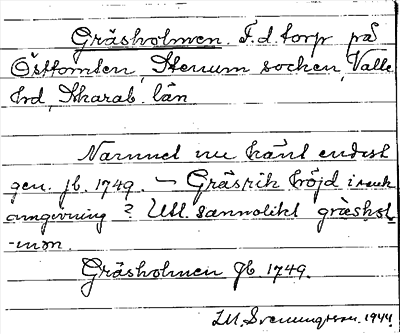 Gräsholmen. F.d. torp på
Östtomten, Stenum socken, Valle
hd, Skarab. län
Namnet nu känt endast
gen. jb. 1749. – Gräsrik höjd i sank
omgivning? Utt. sannolikt
Gräsholmen Jb. 1749.
1944.